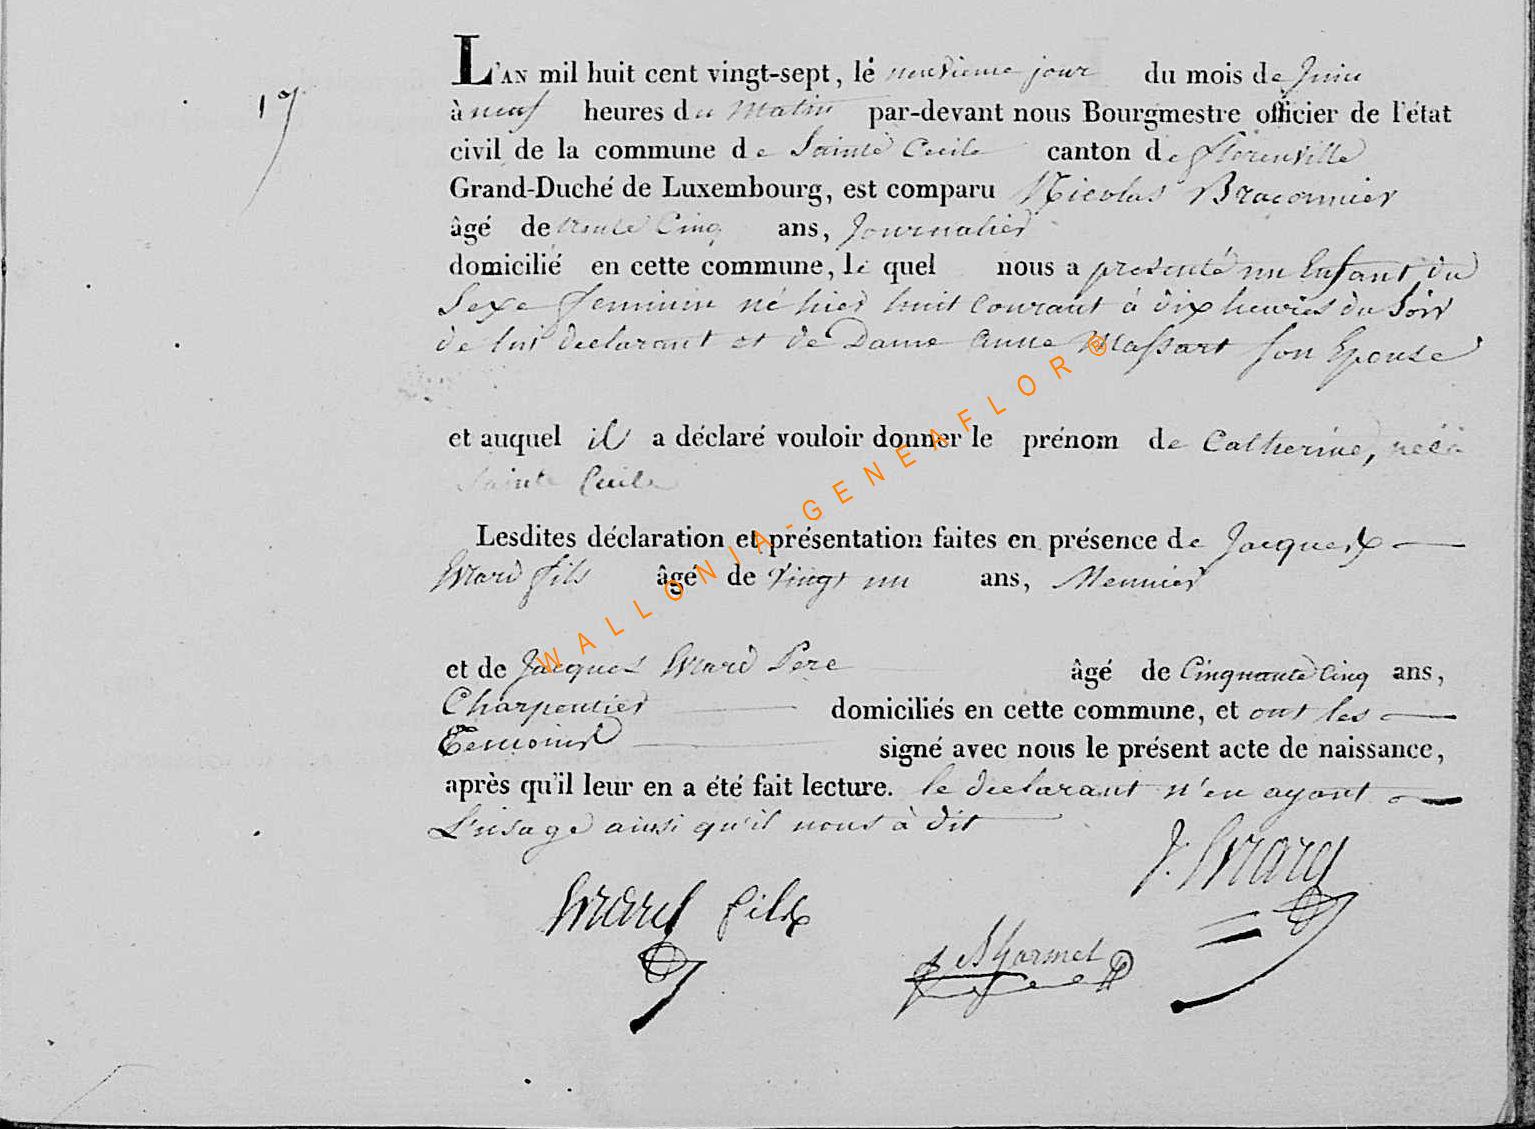 17
L'AN mil huit cent vingt-sept, le neuvieme jour du mois de Juin
à neuf heures du Matin par-devant nous Bourgmestre officier de l'état
civil de la commune de Sainte Cecile canton de florenville
Grand-Duché de Luxembourg, est comparu Nicolas Braconnier
âgé de trente Cinq ans, Journalier
domicilié en cette commune, le quel nous a presenté un Enfant du
Sexe feminin né hier huit Courant à dix heures du Soir
de lui declarant et de Dame Anne Massart son Epouse
et auquel il a déclaré vouloir donner le prénom de Catherine, née à
Sainte Cecile
Lesdites déclaration et présentation faites en présence de Jacques
Evard fils âgé de vingt un ans, Meunier
et de Jacques Evard Pere âgé de Cinquante Cinq ans,
Charpentier domiciliés en cette commune, et ont les
Temoins signé avec nous le présent acte de naissance,
après qu'il leur en a été fait lecture. le declarant n'en ayant
L'usage ainsi qu'il nous à dit
J. Evard
Evard fils
WALLONIA-GENEAFLOR®